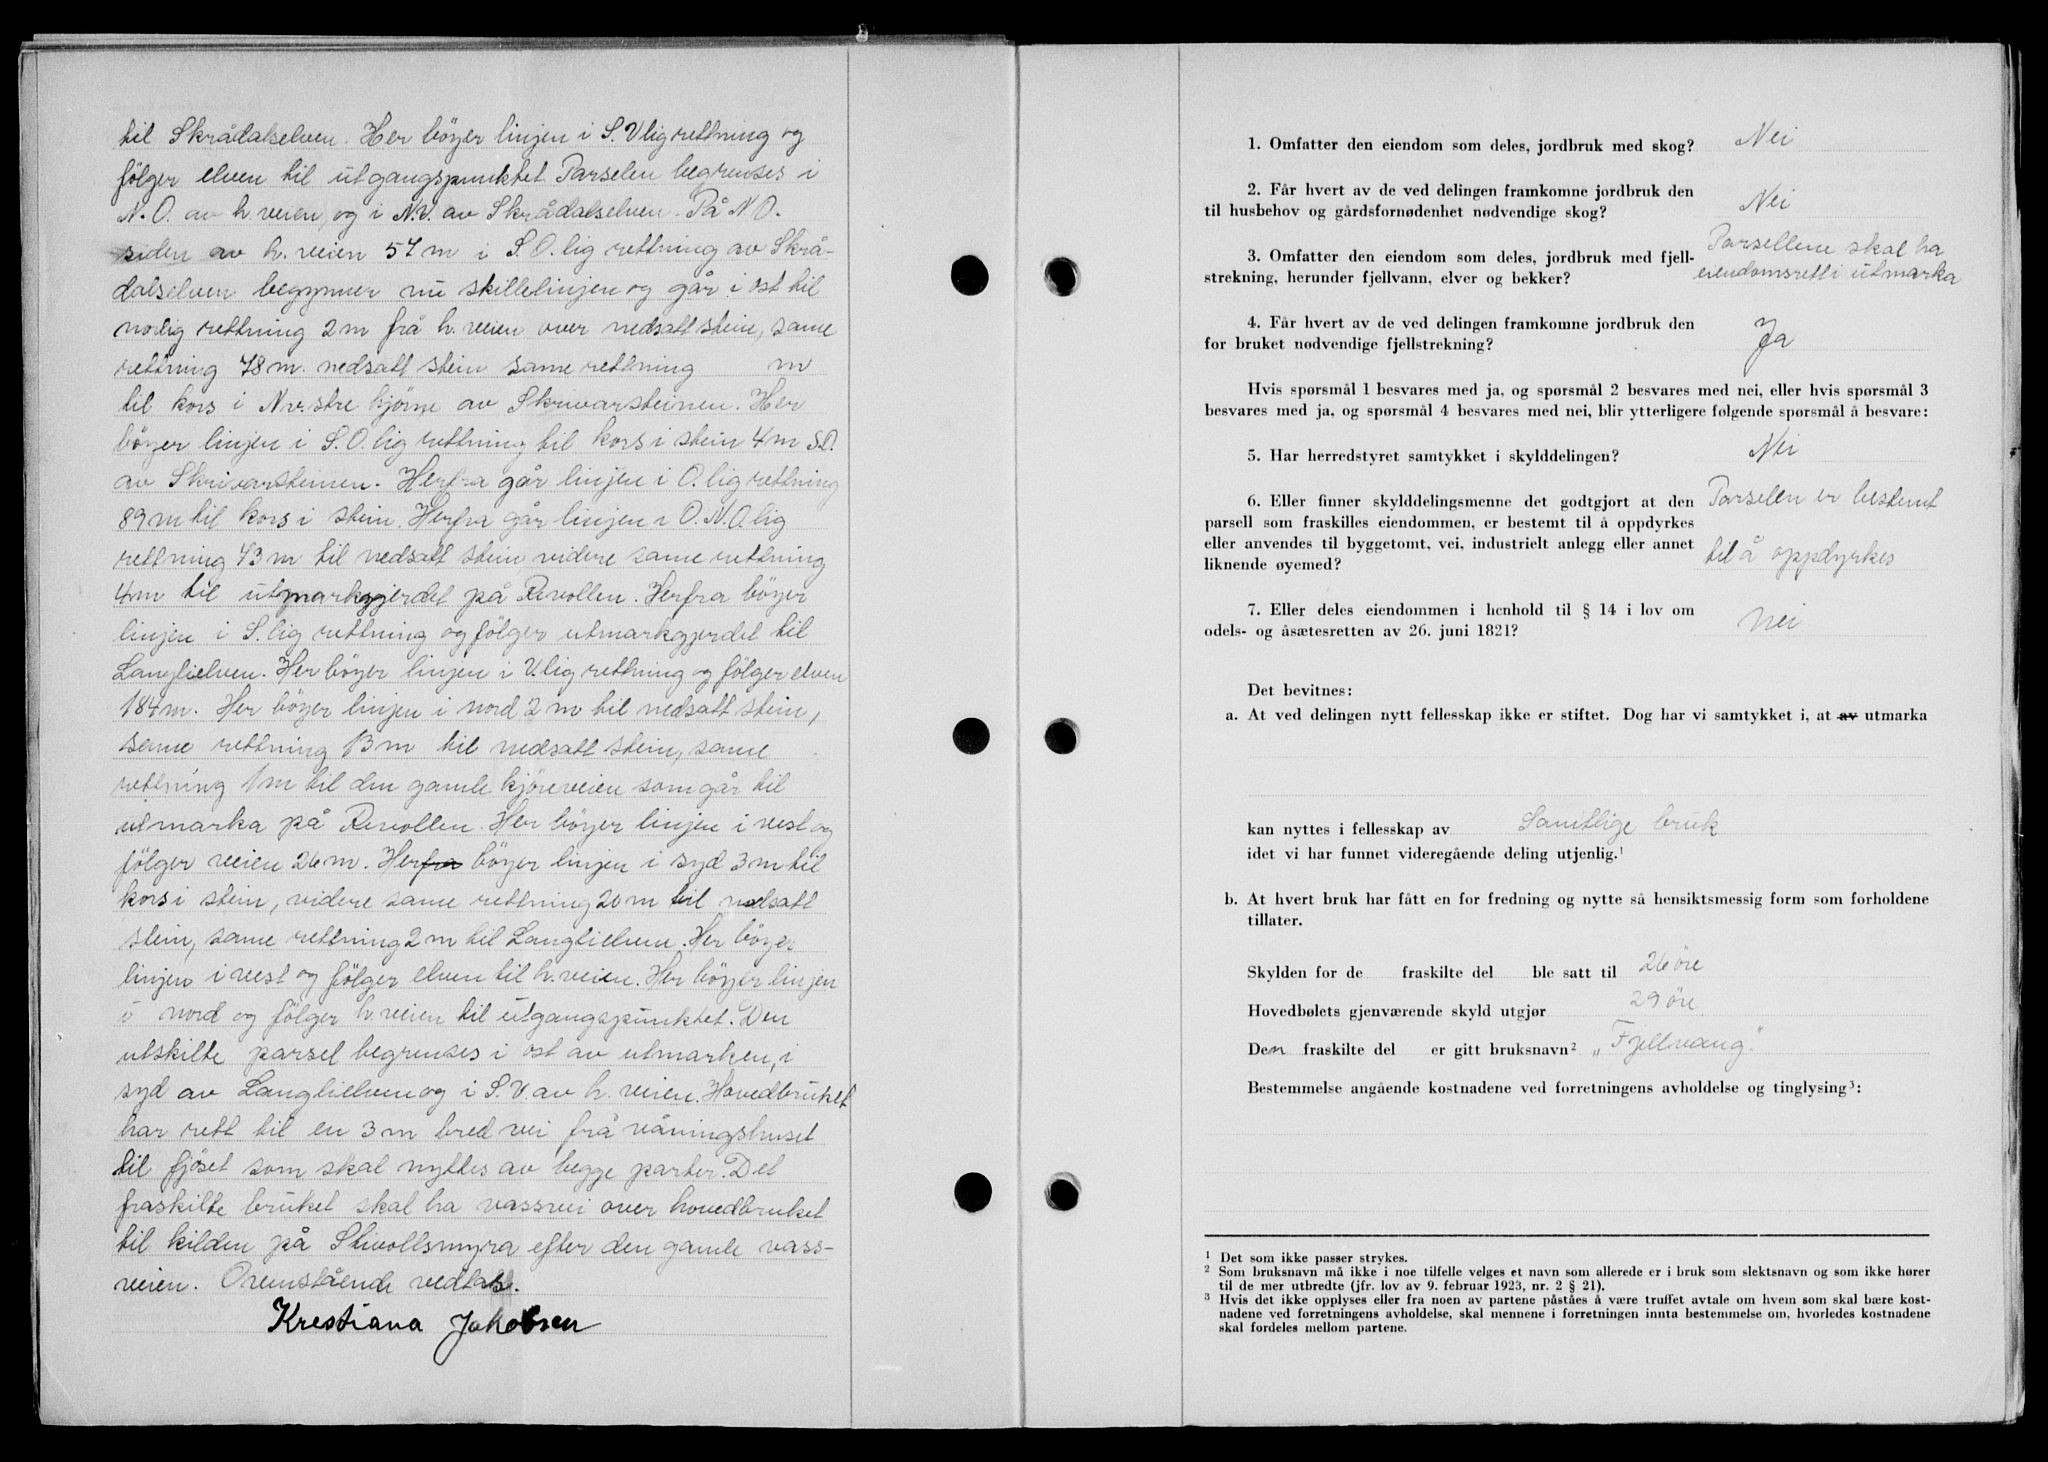 til Skrådalselven. Her böyer linjen i S.Vlig rettning og
fölger elven til utgangspunktet. Parselen begrenses i
N.O. av h.veien, og i N.V. av Skrådalselven. På N O.
siden av h. veien 57 m i S.O.lig rettning av Skrå-
dalselven begynner nu skillelinjen og går i ost til
nordlig rettning 2 m frå h. veien over nedsatt stein, same
rettning 78 m. nedsatt stein same rettning m
til kors i Nv.stre hjörne av Skrivarsteinen. Her
böyer linjen i S.O.lig rettning til kors i stein 4 m S.O.
av Skrivarsteinen. Herfra går linjen i O.lig rettning
89 m til kors i stein. Herfra går linjen i O.N.O.lig
rettning 43 m til nedsatt stein videre same rettning
4 m til utmarkgjerdet på Revollen. Herfra böyer
linjen i S.lig rettning og fölger utmarkgjerdet til
Langlielven. Her böyer linjen i V.lig rettning og fölger elven
184 m. Her böyer linjen i nord 2 m til nedsatt stein,
same rettning 13 m til nedsatt stein, same
rettning 1 m til den gamle kjöreveien som går til
utmarka på Revollen. Her böyer linjen i vest og
fölger veien 26 m. Herfra böyer linjen i syd 3 m til
kors i stein, videre same rettning 20 m til nedsatt
stein, same rettning 2 m til Langlielven. Her böyer
linjen i vest og fölger elven til h.veien. Her böyer linjen
i nord og fölger h.veien til utgangspunktet. Den
utskilte parsel begrenses i ost av utmarken, i
syd av Langlielven og i S.V. av h. veien. Hovedbruket
har rett til en 3 m bred vei frå våningshuset
til fjöset som skal nyttes av begge parter. Det
fraskilte bruket skal ha vassvei over hovedbruket
til kilden på Stivollsmyra efter den gamle vass-
veien. Ovenstående vedtas.
Krestiana Jakobsen
1. Omfatter den eiendom som deles, jordbruk med skog? Nei
2. Får hvert av de ved delingen framkomne jordbruk den
til husbehov og gårdsfornødenhet nødvendige skog? Nei
3. Omfatter den eiendom som deles, jordbruk med fjell- Parsellene skal ha
strekning, herunder fjellvann, elver og bekker? eiendomsrett i utmarka
4. Får hvert av de ved delingen framkomne jordbruk den
for bruket nødvendige fjellstrekning? Ja
Hvis spørsmål 1 besvares med ja, og spørsmål 2 besvares med nei, eller hvis spørsmål 3
besvares med ja, og spørsmål 4 besvares med nei, blir ytterligere følgende spørsmål å besvare:
5. Har herredstyret samtykket i skylddelingen? Nei
6. Eller finner skylddelingsmenne det godtgjort at den Parselen er bestemt
parsell som fraskilles eiendommen, er bestemt til å oppdyrkes
eller anvendes til byggetomt, vei, industrielt anlegg eller annet til å oppdyrkes
liknende øyemed?
7. Eller deles eiendommen i henhold til § 14 i lov om
odels- og åsætesretten av 26. juni 1821? Nei
Det bevitnes:
a. At ved delingen nytt fellesskap ikke er stiftet. Dog har vi samtykket i, at av utmarka
kan nyttes i fellesskap av Samtlige bruk
idet vi har funnet videregående deling utjenlig.¹
b. At hvert bruk har fått en for fredning og nytte så hensiktsmessig form som forholdene
tillater.
Skylden for de fraskilte del ble satt til 26 öre
Hovedbølets gjenværende skyld utgjør 29 öre
Den fraskilte del er gitt bruksnavn² „Fjellvang"
Bestemmelse angående kostnadene ved forretningens avholdelse og tinglysing³:
¹ Det som ikke passer strykes.
² Som bruksnavn må ikke i noe tilfelle velges et navn som allerede er i bruk som slektsnavn og som ikke hører
til de mer utbredte (jfr. lov av 9. februar 1923, nr. 2 § 21).
³ Hvis det ikke opplyses eller fra noen av partene påståes å være truffet avtale om hvem som skal bære kost-
nadene ved forretningens avholdelse, skal mennene i forretningen innta bestemmelse om, hvorledes kostnadene
skal fordeles mellom partene.